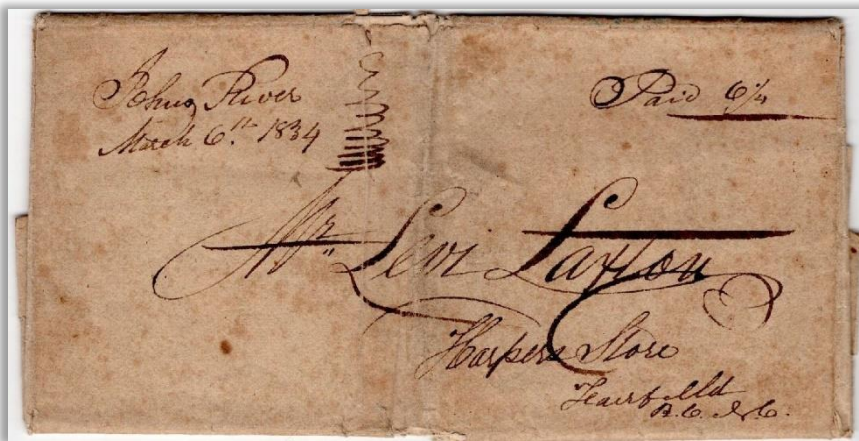 Johns River
March 6th. 1834
Paid 6¼
Mr. Levi Laxton
Harpers Store
B.C. N.C.